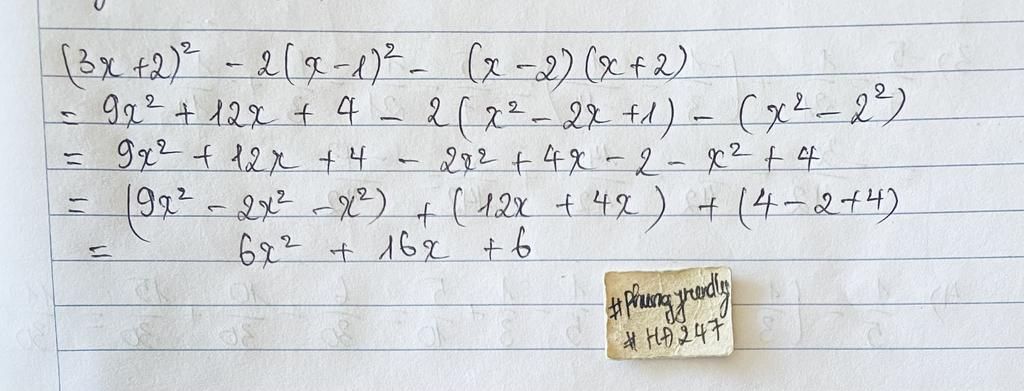 (3x+2)² - 2(x-1)² - (x-2)(x+2)
= 9x² + 12x + 4 - 2(x² - 2x +1) - (x² - 2²)
= 9x² + 12x + 4 - 2x² + 4x - 2 - x² + 4
= (9x² - 2x² - x²) + (12x + 4x) + (4-2+4)
= 6x² + 16x + 6
#HD247